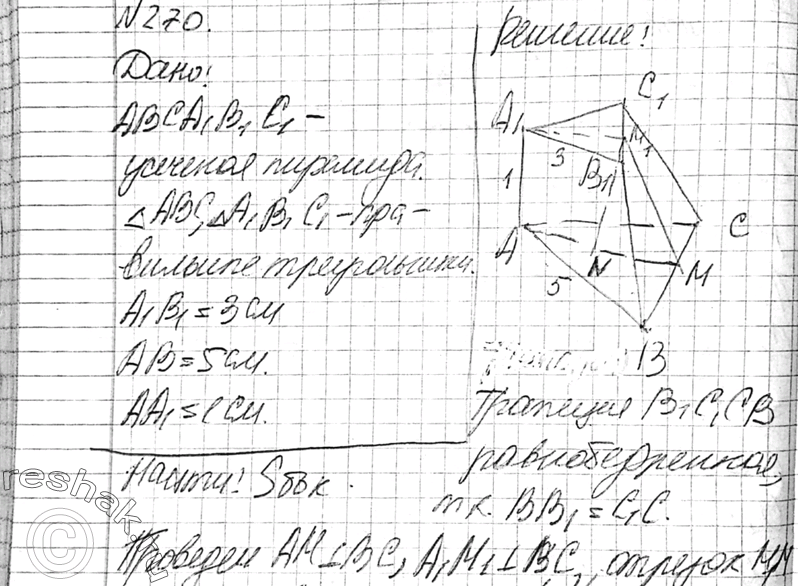 N270.
Дано:
ABCA₁B₁C₁ –
усеченая пирамида.
△ABC, △A₁B₁C₁ – пра-
вильные треугольники.
A₁B₁ = 3 см
AB = 5 см.
AA₁ = 1 см.
Найти: Sбок.
Решение:
C₁
A₁
M₁
3
B₁
1
A
N
C
M
5
B
Трапеция B₁C₁CB
равнобедренная,
т.к. BB₁ = C₁C.
Проведем AM⊥BC, A₁M₁⊥BC, отрезок M₁M
reshak.ru
©